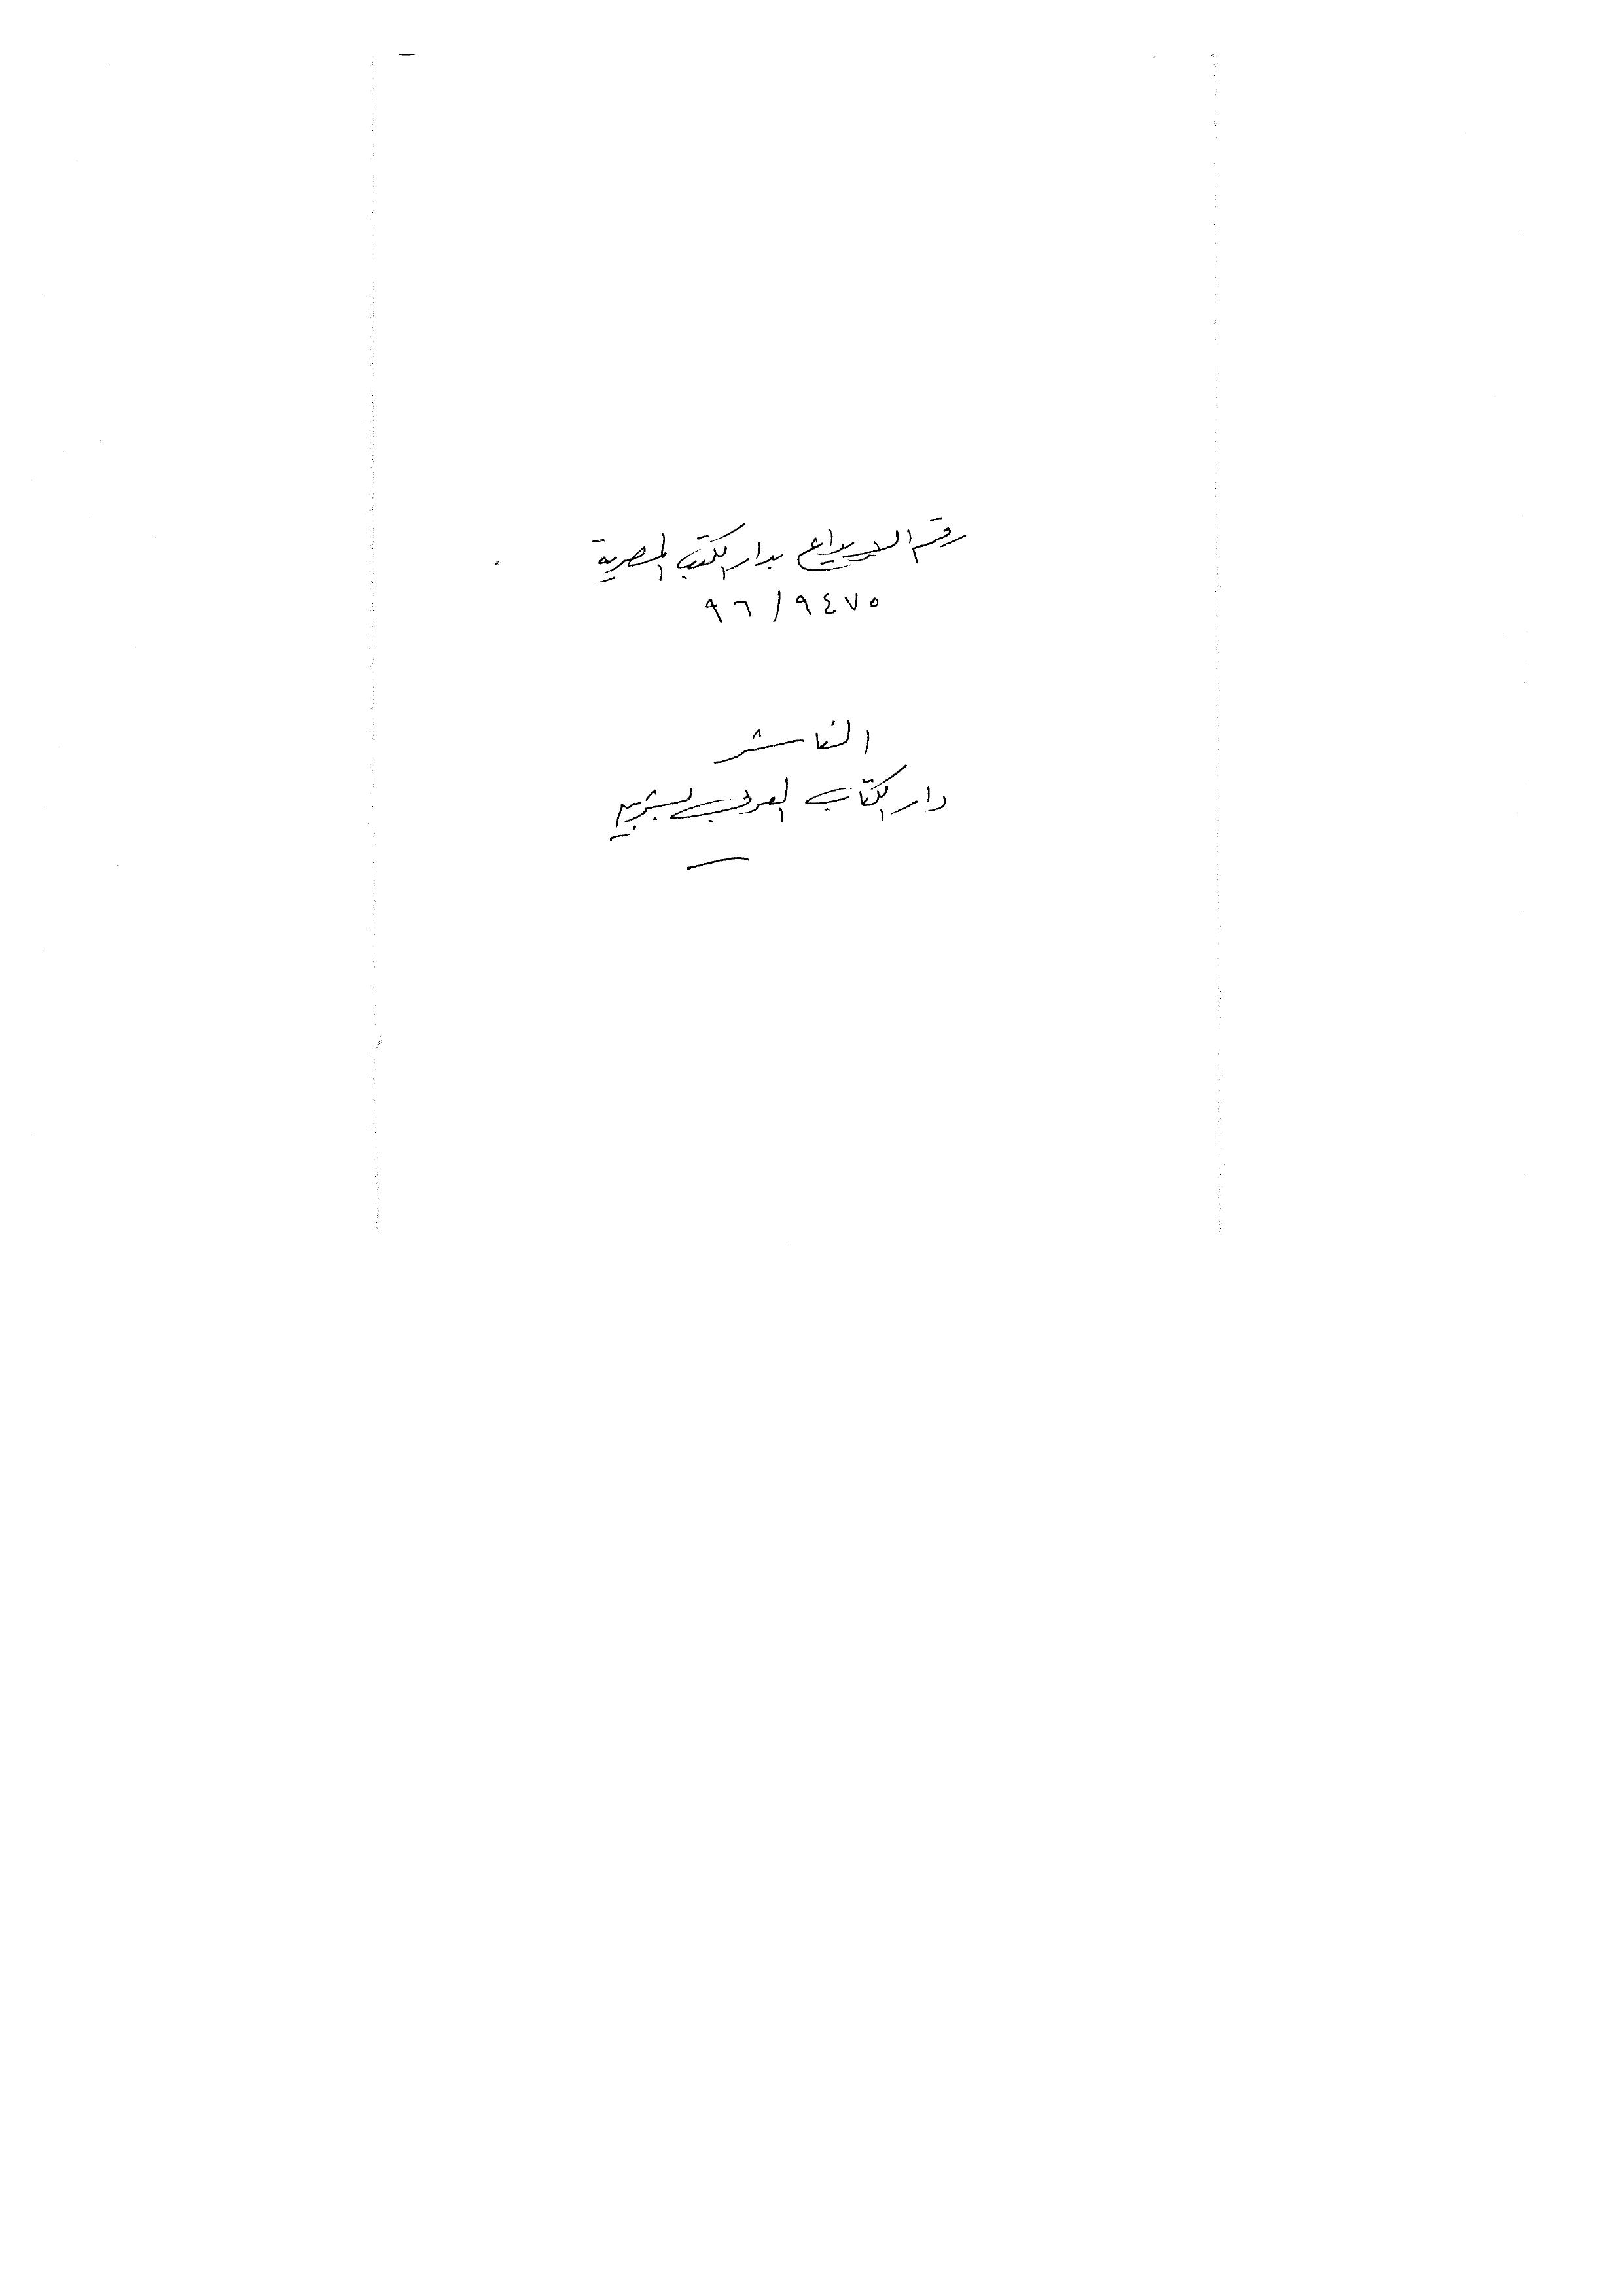 رقم الايداع بدار الكتب المصرية
٩٤٧٥ / ٩٦
الناشر
دار الكتاب العربى بشربين